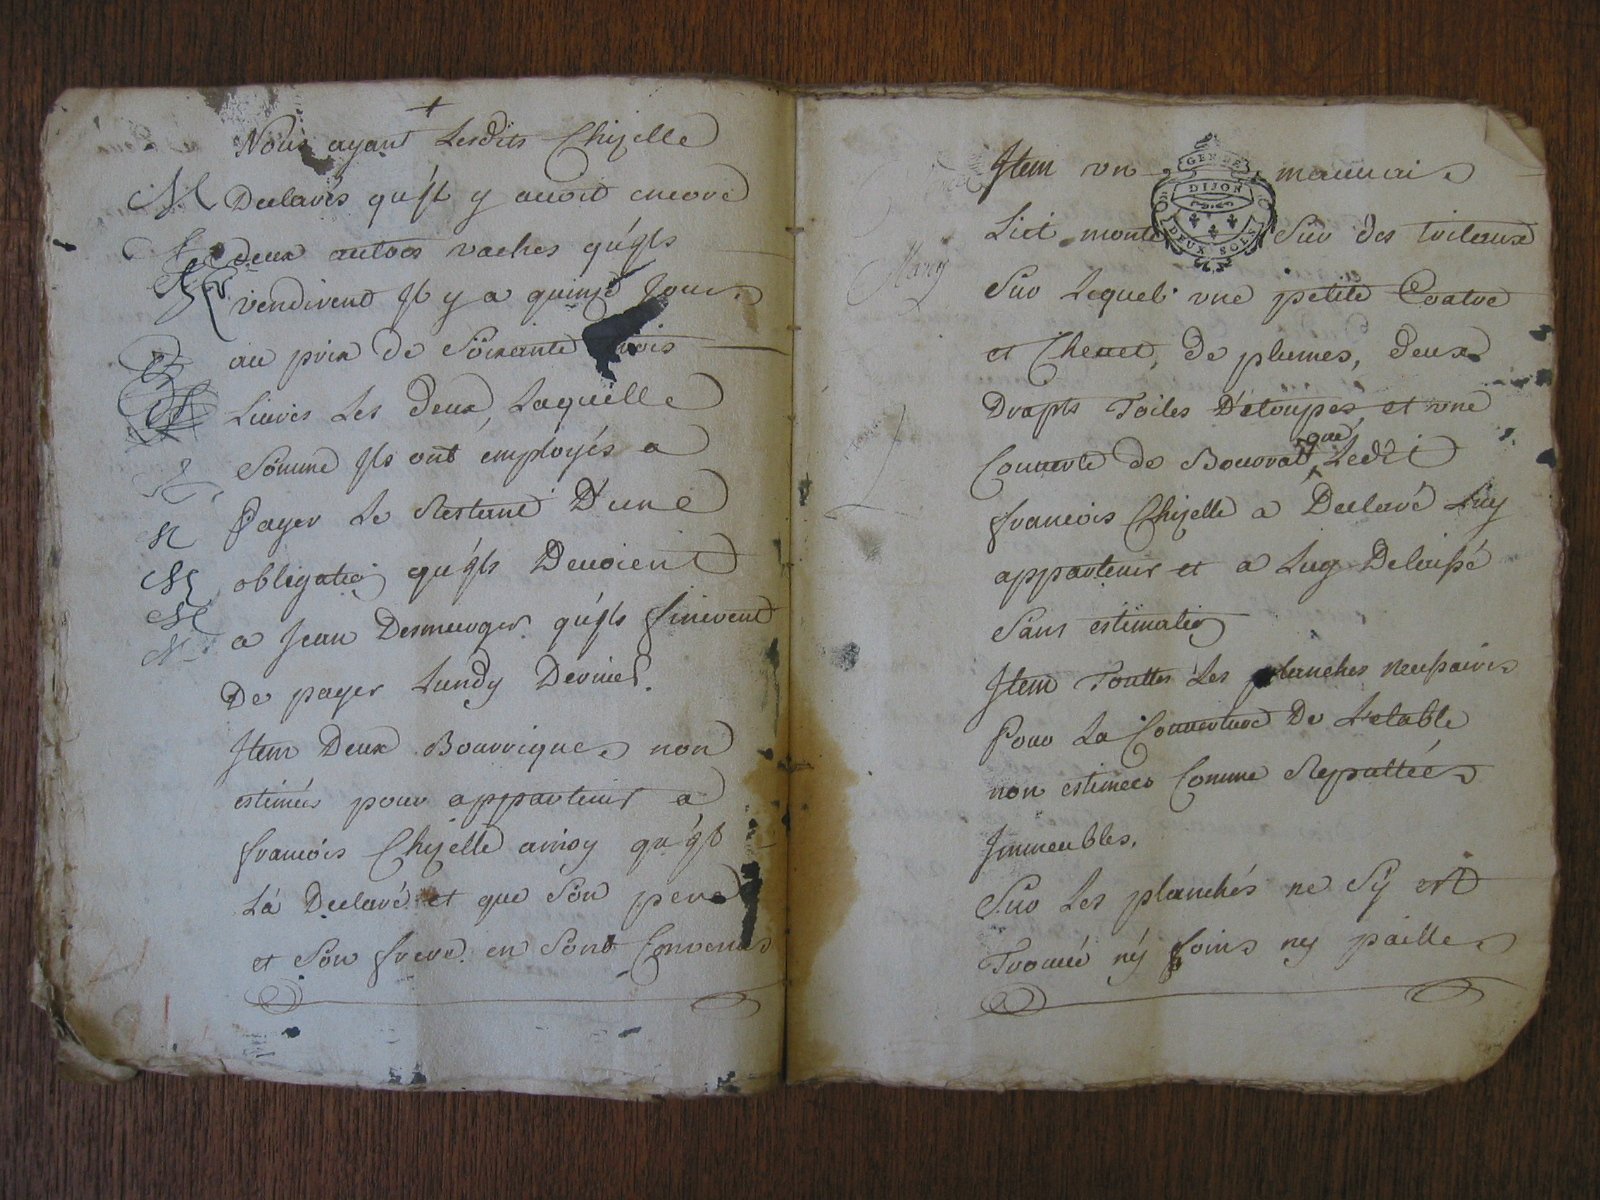 Nous ayant Lesdits Chizelle
Declarés qu'jl y auoit encore
deux autres vaches qu'jls
vendirent Jl y a quinze Jours
au prix de Soixante trois
Liures Les deux, Laquelle
Somme Jls ont employés a
Payer Le Restant D'une
obligation qu'jls Deuoient
a Jean Desmeurger qu'jls finirent
De payer Lundy Dernier.
Jtem Deux Bourriques non
estimées pour appartenir a
francois Chizelle ainsy qu'jl
La Declaré et que Son pere
et Son frere en Sont Convenus
Jtem vn mauuais
GEN DE
DIJON
DEUX SOLS
Lict monté Sur des treteaux
Sur Lequel vne petite Coatre
et Cheuet, de plumes, deux
Drapts Toiles D'etoupes, et vne
Couuerte de Bourrat que Ledit
francois Chizelle a Declaré Luy
appartenir et a Luy Delaissé
Sans estimation
Jtem Touttes Les planches
Pour La Couuerture De Letable
non estimées Comme Reputtées
Jmmeubles.
Sur Les planchés ne Sÿ est
Trouué nÿ foins ny paille